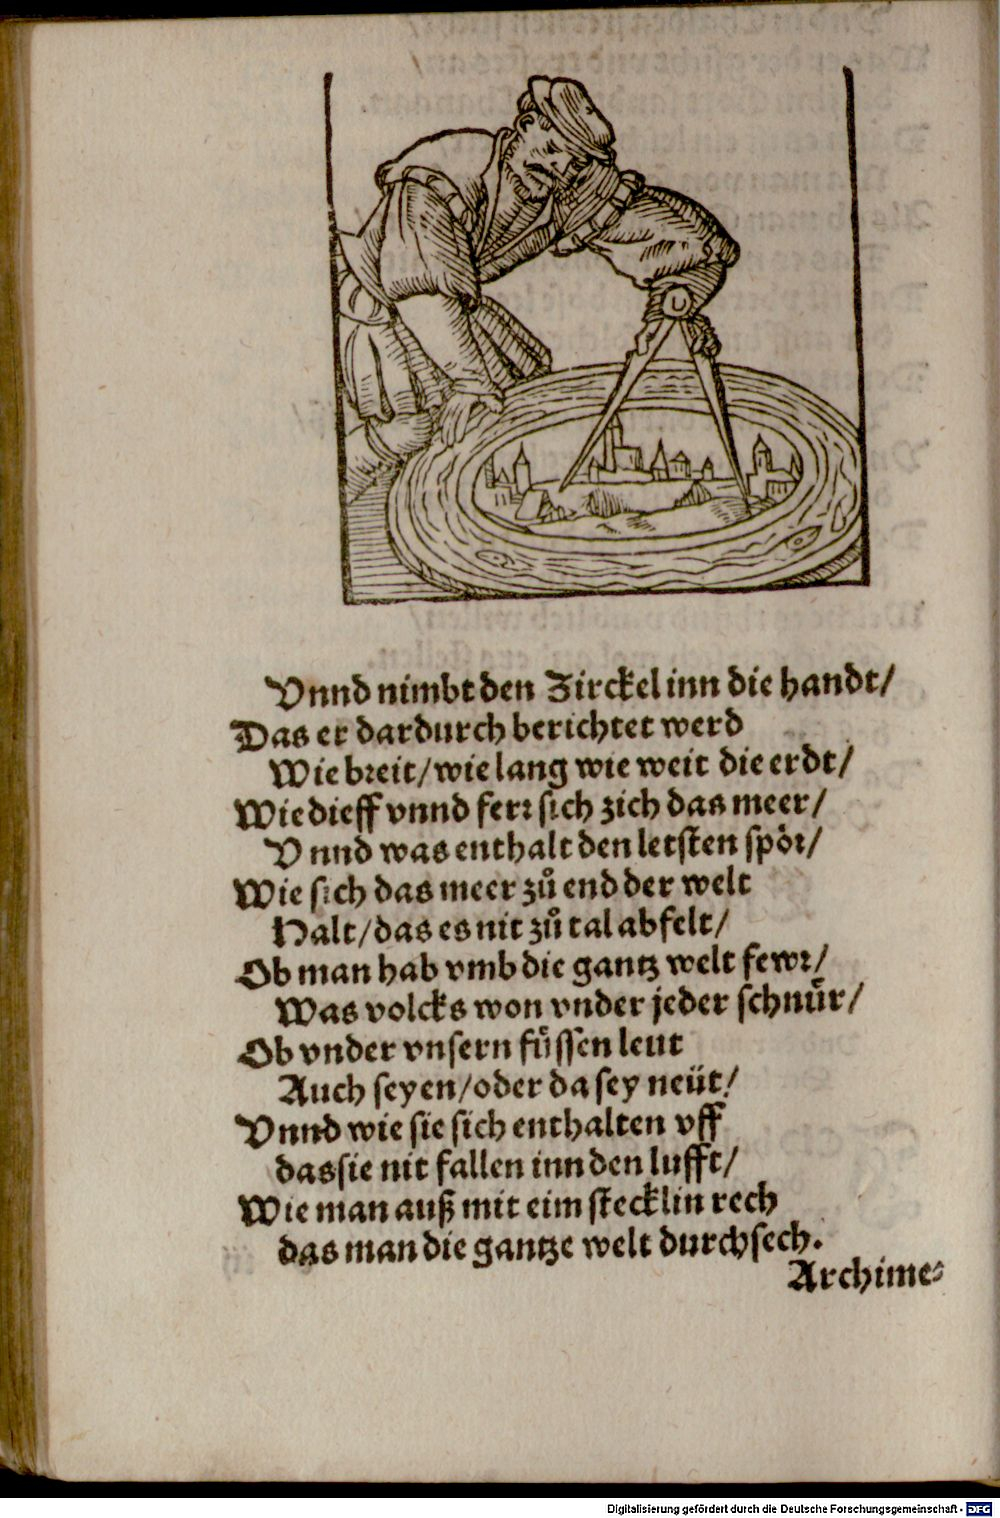 Vnnd nimbt den Zirckel inn die handt/
Das er dardurch berichtet werd
Wie breit/wie lang wie weit die erdt/
Wie dieff vnnd ferr sich zich das meer/
Vnnd was enthalt den letsten spör/
Wie sich das meer zů end der welt
Halt/das es nit zů tal abfelt/
Ob man hab vmb die gantz welt fewr/
Was volcks won vnder jeder schnůr/
Ob vnder vnsern fůssen leut
Auch seyen/oder da sey neüt/
Vnnd wie sie sich enthalten vff
das sie nit fallen inn den lufft/
Wie man auß mit eim stecklin rech
das man die gantze welt durchsech.
Archime⸗
Digitalisierung gefördert durch die Deutsche Forschungsgemeinschaft - DFG